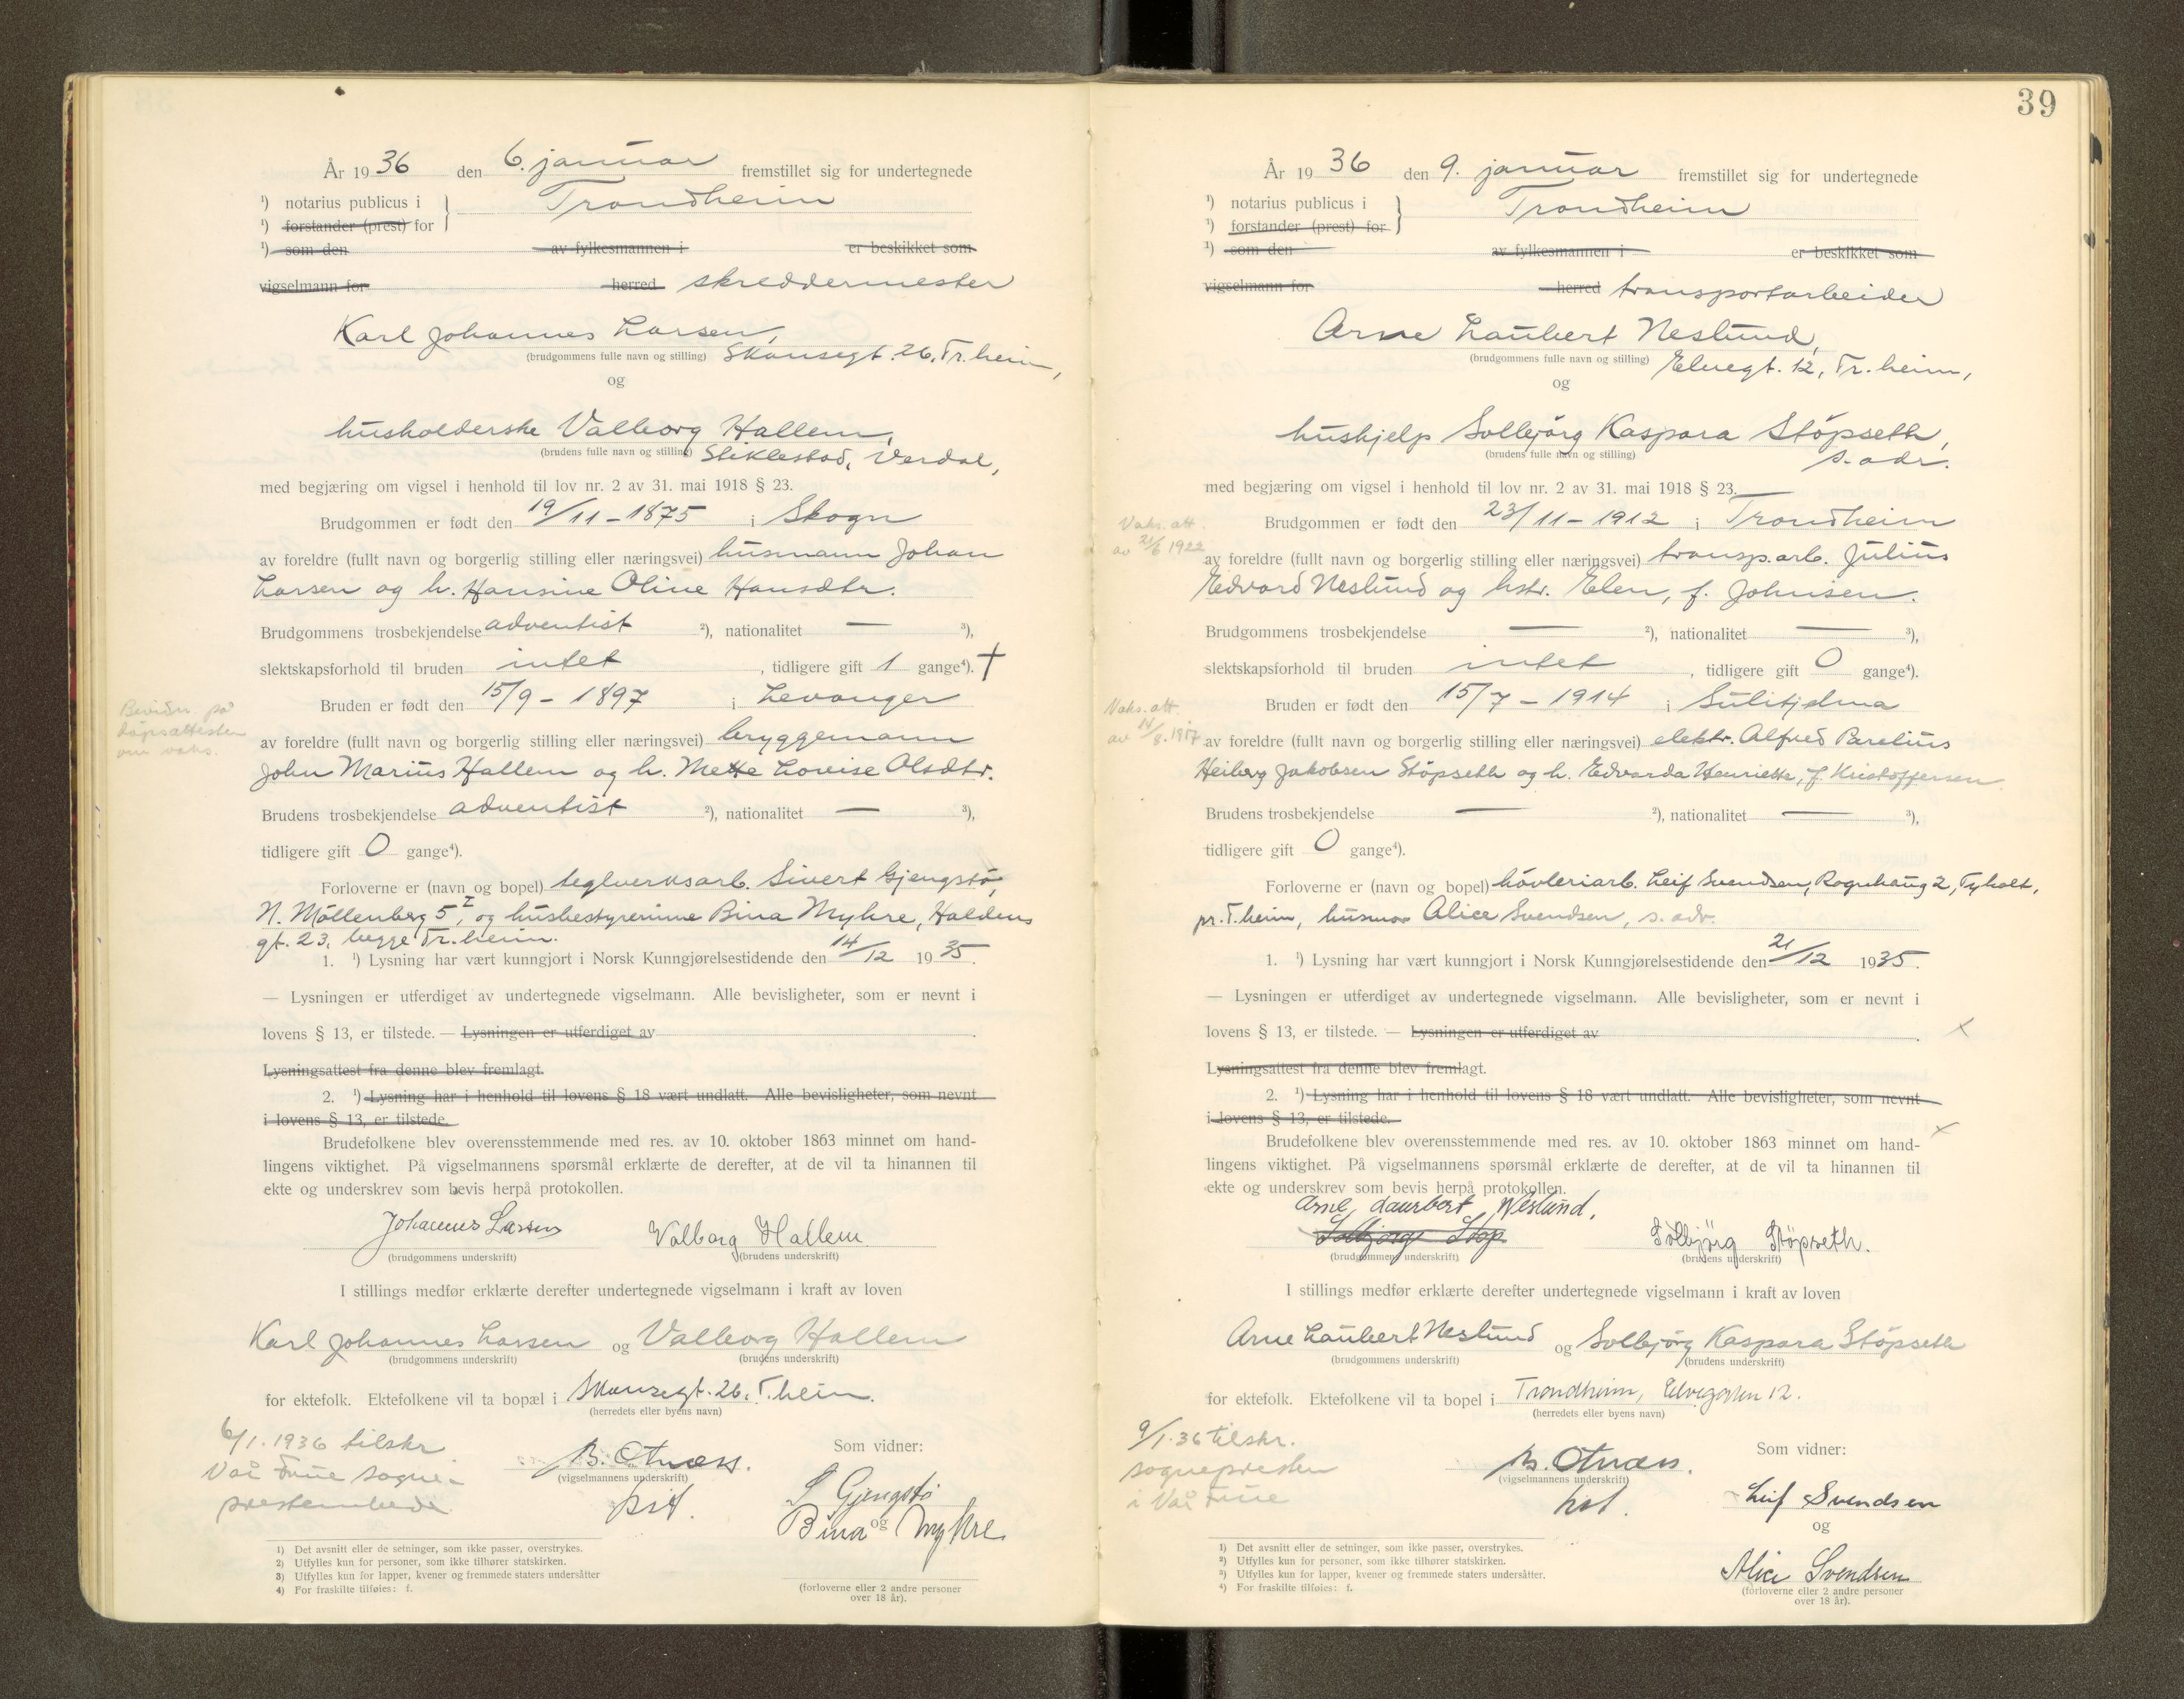 År 1936 den 6. januar fremstillet sig for undertegnede
¹) notarius publicus i Trondheim
¹) forstander (prest) for
¹) som den av fylkesmannen i er beskikket som
vigselmann for herred skreddermester
Karl Johannes Larsen,
(brudgommens fulle navn og stilling) Skansegt. 26, Tr.heim,
og
husholderske Valborg Hallem,
(brudens fulle navn og stilling) Stiklestad, Verdal,
med begjæring om vigsel i henhold til lov nr. 2 av 31. mai 1918 § 23.
Brudgommen er født den 19/11 - 1875 i Skogn
av foreldre (fullt navn og borgerlig stilling eller næringsvei) husmann Johan
Larsen og h. Hansine Oline Hansdtr.
Brudgommens trosbekjendelse adventist ²), nationalitet — ³),
slektskapsforhold til bruden intet, tidligere gift 1 gange⁴). †
Bruden er født den 15/9 - 1897 i Levanger
Bevidn. på
dåpsattesten
om vaks.
av foreldre (fullt navn og borgerlig stilling eller næringsvei) bryggemann
John Marius Hallem og h. Mette Lovise Olsdtr.
Brudens trosbekjendelse adventist ²), nationalitet — ³),
tidligere gift 0 gange⁴).
Forloverne er (navn og bopel) teglverksarb. Sivert Gjengstø,
N. Möllenberg 5 I, og husbestyrerinne Bina Myhre, Haldens
gt. 23, begge Tr.heim.
1. ¹) Lysning har vært kunngjort i Norsk Kunngjørelsestidende den 14/12 1935.
— Lysningen er utferdiget av undertegnede vigselmann. Alle bevisligheter, som er nevnt i
lovens § 13, er tilstede. — Lysningen er utferdiget av .
Lysningsattest fra denne blev fremlagt.
2. ¹) Lysning har i henhold til lovens § 18 vært undlatt. Alle bevisligheter, som nevnt
i lovens § 13, er tilstede.
Brudefolkene blev overensstemmende med res. av 10. oktober 1863 minnet om hand-
lingens viktighet. På vigselmannens spørsmål erklærte de derefter, at de vil ta hinannen til
ekte og underskrev som bevis herpå protokollen.
Johannes Larsen Valborg Hallem
(brudgommens underskrift) (brudens underskrift)
I stillings medfør erklærte derefter undertegnede vigselmann i kraft av loven
Karl Johannes Larsen og Valborg Hallem
(brudgommens underskrift) (brudens underskrift)
for ektefolk. Ektefolkene vil ta bopæl i Skansegt. 26, T.heim.
(herredets eller byens navn)
6/1. 1936 tilskr
Vår Frue sogne-
prestembede.
B. Otnæss.
(vigselmannens underskrift)
Som vidner:
S Gjengstø
og
Bina Myhre
(forloverne eller 2 andre personer
over 18 år).
1) Det avsnitt eller de setninger, som ikke passer, overstrykes.
2) Utfylles kun for personer, som ikke tilhører statskirken.
3) Utfylles kun for lapper, kvener og fremmede staters undersåtter
4) For fraskilte tilføies: f.
39
År 1936 den 9. januar fremstillet sig for undertegnede
¹) notarius publicus i Trondheim
¹) forstander (prest) for
¹) som den av fylkesmannen i er beskikket som
vigselmann for herred transportarbeider
Arne Laubert Neslund,
(brudgommens fulle navn og stilling) Elvegt. 12, Tr.heim,
og
hushjelp Solbjörg Kaspara Stöpseth,
(brudens fulle navn og stilling) s. adr.
med begjæring om vigsel i henhold til lov nr. 2 av 31. mai 1918 § 23.
Vaks. att.
av 21/6 1922
Brudgommen er født den 23/11 - 1912 i Trondheim
av foreldre (fullt navn og borgerlig stilling eller næringsvei) transp.arb. Julius
Edvard Neslund og hstr. Elen, f. Johnsen.
Brudgommens trosbekjendelse — ²), nationalitet — ³),
slektskapsforhold til bruden intet, tidligere gift 0 gange⁴).
Bruden er født den 15/7 - 1914 i Sulitjelma
Vaks. att.
av 14/8. 1917
av foreldre (fullt navn og borgerlig stilling eller næringsvei) elektr. Alfred Parelius
Heiberg Jakobsen Stöpseth og h. Edvarda Henriette, f. Kristoffersen
Brudens trosbekjendelse — ²), nationalitet — ³),
tidligere gift 0 gange⁴).
Forloverne er (navn og bopel) hövleriarb. Leif Svendsen, Rognhaug 2, Tyholt,
pr. T.heim, husmor Alice Svendsen, s. adr.
1. ¹) Lysning har vært kunngjort i Norsk Kunngjørelsestidende den 21/12 1935.
— Lysningen er utferdiget av undertegnede vigselmann. Alle bevisligheter, som er nevnt i
lovens § 13, er tilstede. — Lysningen er utferdiget av .
Lysningsattest fra denne blev fremlagt.
2. ¹) Lysning har i henhold til lovens § 18 vært undlatt. Alle bevisligheter, som nevnt
i lovens § 13, er tilstede.
Brudefolkene blev overensstemmende med res. av 10. oktober 1863 minnet om hand-
lingens viktighet. På vigselmannens spørsmål erklærte de derefter, at de vil ta hinannen til
ekte og underskrev som bevis herpå protokollen.
Arne Laurbert Neslund.
Solbjørg Støp Solbjörg Stöpseth.
(brudgommens underskrift) (brudens underskrift)
I stillings medfør erklærte derefter undertegnede vigselmann i kraft av loven
Arne Laubert Neslund og Solbjörg Kaspara Stöpseth
(brudgommens underskrift) (brudens underskrift)
for ektefolk. Ektefolkene vil ta bopel i Trondheim, Elvegaten 12.
(herredets eller byens navn)
9/1. 36 tilskr.
sognepresten
i Vår Frue
B. Otnæss.
(vigselmannens underskrift)
Som vidner:
Leif Svendsen
og
Alice Svendsen
(forloverne eller 2 andre personer
over 18 år).
¹) Det avsnitt eller de setninger, som ikke passer, overstrykes.
²) Utfylles kun for personer, som ikke tilhører statskirken.
³) Utfylles kun for lapper, kvener og fremmede staters undersåtter.
⁴) For fraskilte tilføies: f.